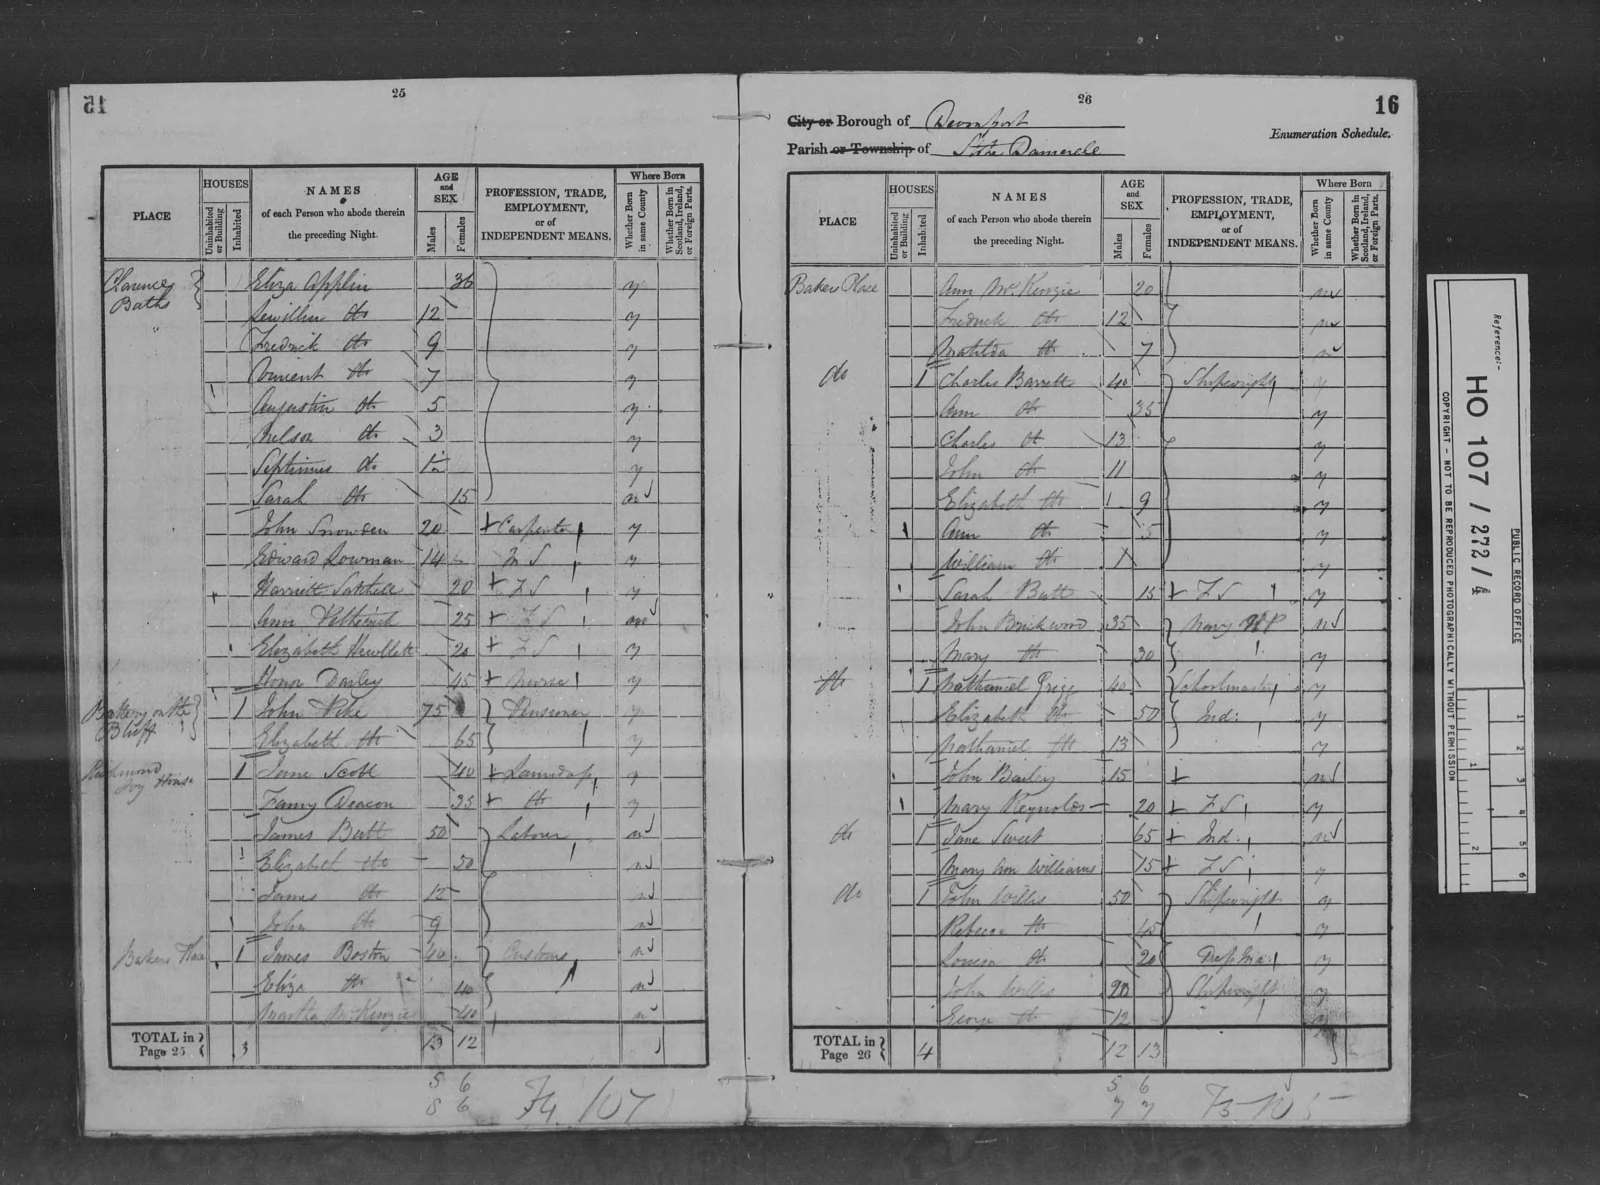 15
25
PLACE
HOUSES
Uninhabited or Building
Inhabited
NAMES
of each Person who abode therein
the preceding Night.
AGE and SEX
Males
Females
PROFESSION, TRADE,
EMPLOYMENT,
or of
INDEPENDENT MEANS.
Where Born
Whether Born in same County
Whether Born in Scotland, Ireland, or Foreign Parts.
Clarence Baths Eliza Applin 36 y
Lewillin do 12 y
Fredrick do 9 y
Vincent do 7 y
Augustin do 5 y
Nelson do 3 y
Septimus do y
Sarah do 15 n
John Snowden 20 Carpenter y
Edward Lowman 14 M S y
Harriett Satchell 20 F S y
Ann 25 F S no
Elizabeth Hewllett 20 F S y
Honor Darley 45 Nurse y
Battery on the Bluff 1 John Pike 75 Pensioner y
Elizabeth do 65 y
Richmond House 1 Jane Scobl 40 y
Fanny Deacon 35 do y
James Butt 50 Laborer n
Elizabeth do 50 n
James do 12 n
John do 9 n
Bakers Place 1 James Boston 40 Customs n
Eliza do 40 n
Martha McKenzie 40 n
TOTAL in Page 25 3 13 12
5 6
8 6
74 107
26
16
City or Borough of Devonport
Parish or Township of Stoke Damerele
Enumeration Schedule.
PLACE
HOUSES
Uninhabited or Building
Inhabited
NAMES
of each Person who abode therein
the preceding Night.
AGE and SEX
Males
Females
PROFESSION, TRADE,
EMPLOYMENT,
or of
INDEPENDENT MEANS.
Where Born
Whether Born in same County
Whether Born in Scotland, Ireland, or Foreign Parts.
Bakers Place Ann McKenzie 20 n
Fredrick do 12 n
Matilda do 7 n
do 1 Charles Barrett 40 Shipwright y
Ann do 35 y
Charles do 13 y
John do 11 y
Elizabeth do 9 y
Ann do 5 y
William do 1 y
Sarah Butt 15 F S y
John Brickwood 35 Navy H P n
Mary do 30 y
do 1 Nathaniel Grigg 40 Schoolmaster y
Elizabeth do 50 Ind: y
Nathaniel do 13 y
John Bailey 15 n
Mary Reynolds 20 F S y
do 1 Jane Sweet 65 Ind: n
Mary Ann Williams 15 F S y
do 1 John Willis 50 Shipwright y
Rebecca do 45 y
Louisa do 20 y
John Willis 20 Shipwright y
George do 12 y
TOTAL in Page 26 4 12 13
5 6
7 7
75 105
Reference:-
HO 107 / 272 / 4
PUBLIC RECORD OFFICE
COPYRIGHT - NOT TO BE REPRODUCED PHOTOGRAPHICALLY WITHOUT PERMISSION
1 2 3 4 5 6
1 2